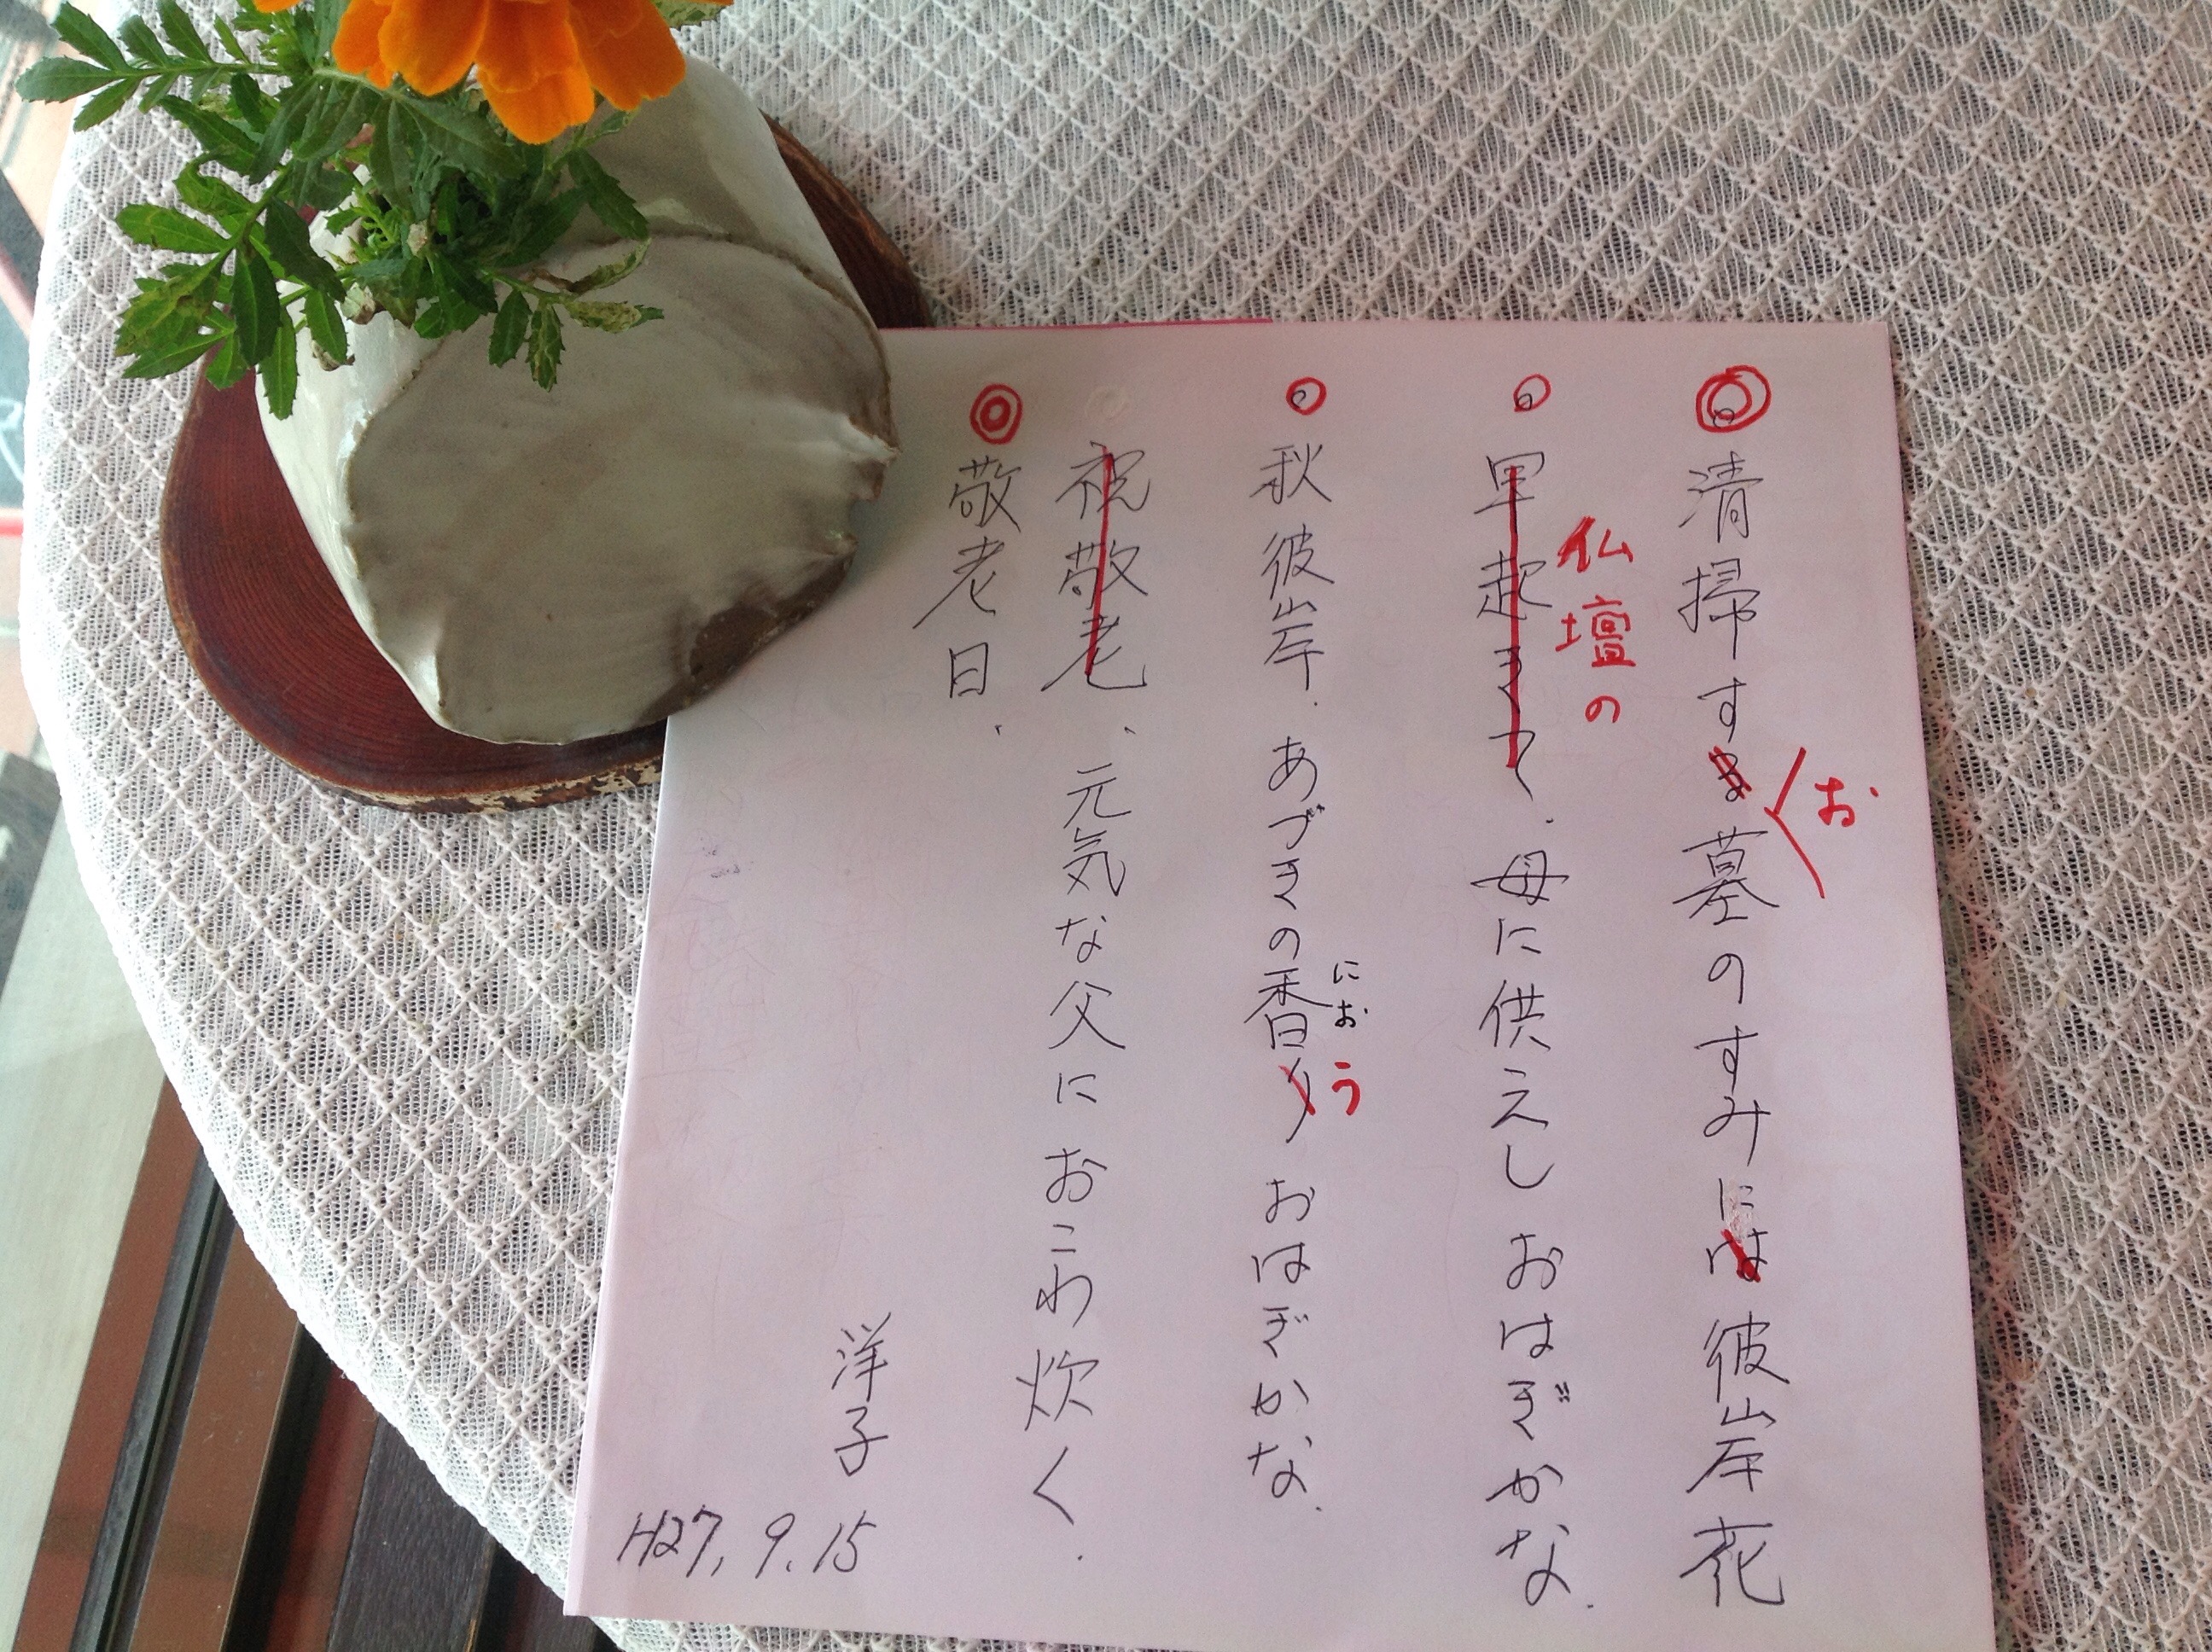 清掃すま墓のすみには彼岸花
お
仏壇の
早起きて、母に供えしおはぎかな.
秋彼岸.あづきの香りおはぎかな.
にお
う
祝敬老、元気な父におこわ炊く.
敬老日、
洋子
H27,9.15